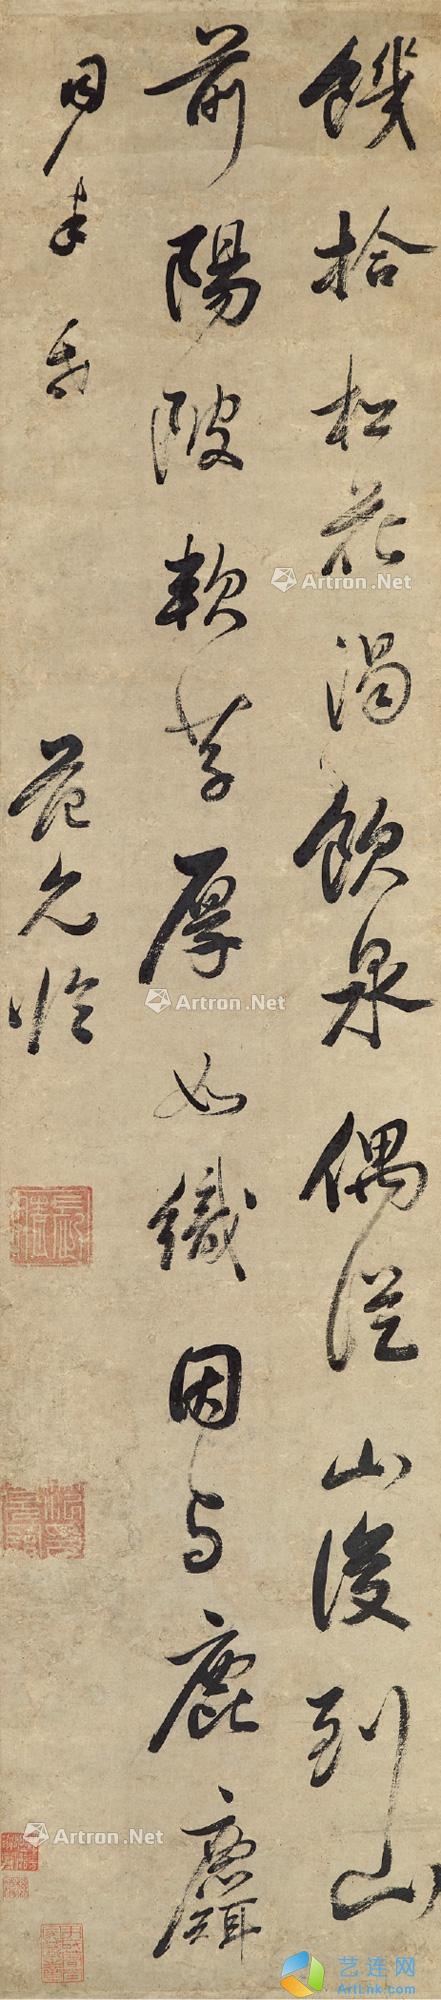 饑拾松花渴飲泉偶從山後到山
前陽陂軟草厚如織因與鹿麛
范允臨
Artron.Net
Artron.Net
Artron.Net
艺连网
ArtLink.com